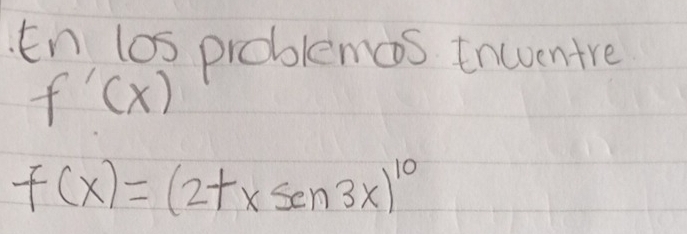 .En los problemas Encuentre
f'(x)
f(x)=(2+x sen 3x)^10